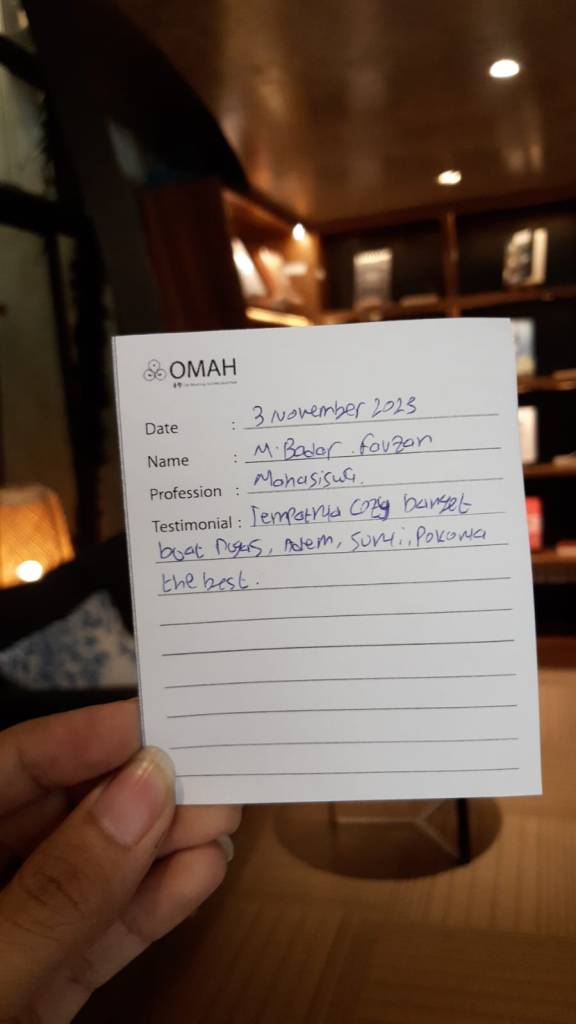 OMAH
Date : 3 November 2023
Name : M. Badar Fauzan
Profession : Mahasiswa.
Testimonial : Tempatnya Cozy banget
buat Nugas, Adem, Sunyi, Pokonya
the best.